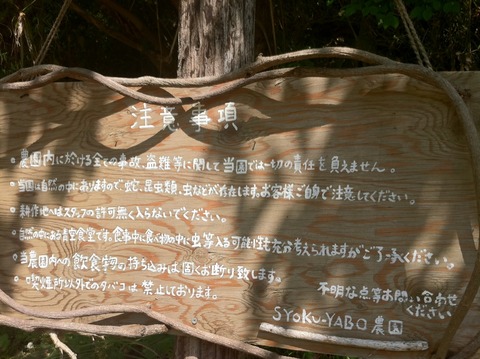 注意事項
• 農園内に於ける全ての事故、盗難等に関して当園では一切の責任を負えません。
• 当園は自然の中にありますので、蛇、昆虫類、虫などが存在します。お客様ご自身で注意してください。
• 耕作地へはスタッフの許可無く入らないでください。
• 自然の中にある青空食堂です。食事中に食べ物の中に虫等入る可能性も充分考えられますがご了承ください。
• 当農園内への飲食物の持ち込みは固くお断り致します。
• 喫煙所以外でのタバコは禁止しております。
不明な点等お問い合わせ
ください
SYOKU-YABO農園